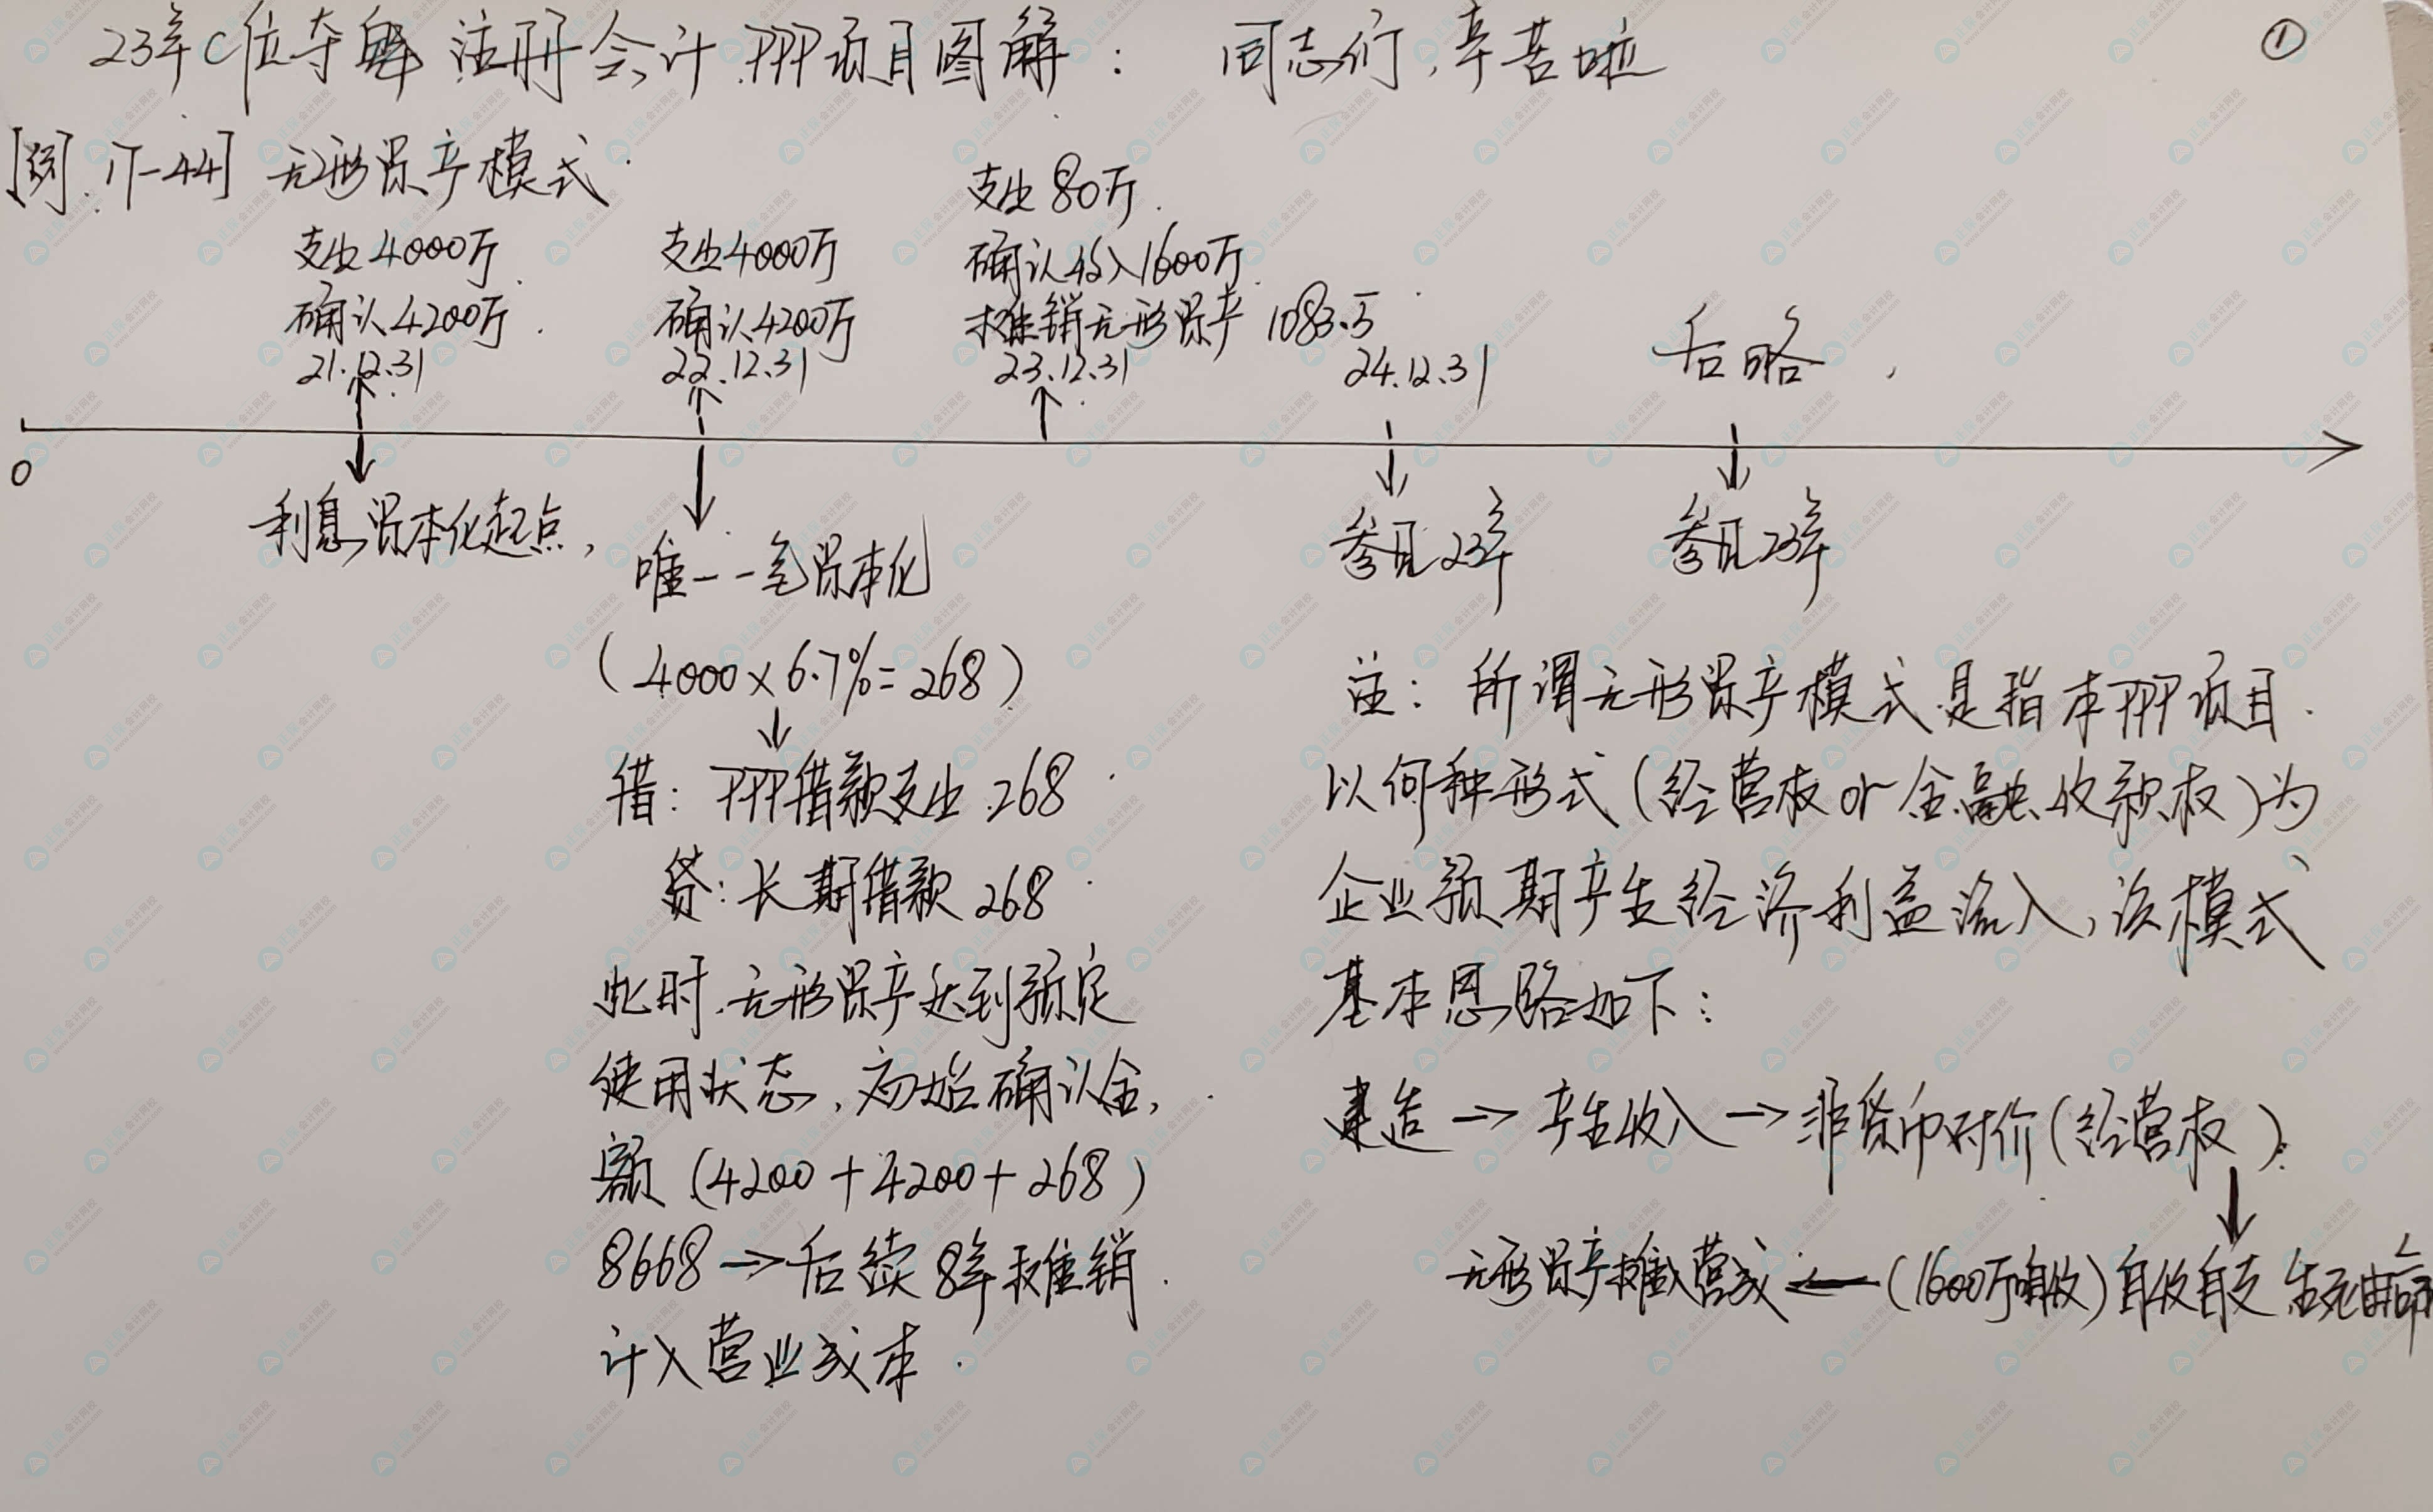 23年C位夺魁 注册会计 PPP项目图解： 同志们，辛苦啦
①
[例 17-44] 无形资产模式
支出4000万
确认4200万
21.12.31
支出4000万
确认4200万
22.12.31
支出80万
确认收入1600万
摊销无形资产 1083.5
23.12.31
24.12.31
后略
0
利息资本化起点，
唯一一笔资本化
(4000×6.7%=268)
借：PPP借款支出 268
贷：长期借款 268
此时，无形资产达到预定
使用状态，初始确认金
额 (4200+4200+268)
8668→后续8年摊销
计入营业成本
参见23年
参见23年
注：所谓无形资产模式是指本PPP项目
以何种形式(经营权or金融收款权)为
企业预期产生经济利益流入，该模式
基本思路如下：
建造→产生收入→非货币对价(经营权)
无形资产摊入营成←(1600万自收)自收自支 生死由命